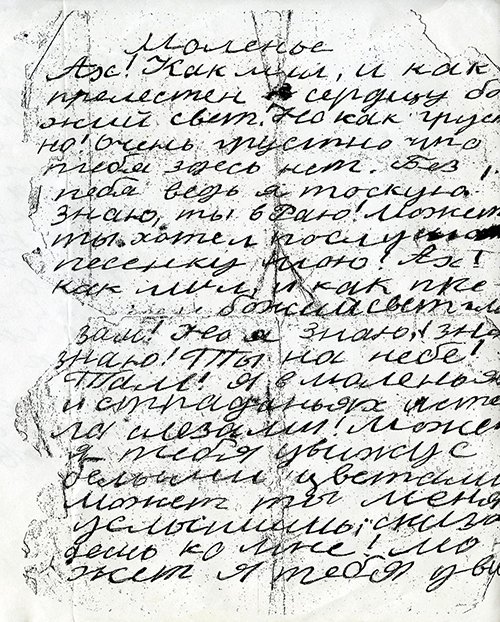 Моленье
Ах! Как мил, и как
прелестен в сердцу бо
жий свет. Но как груст
но! Очень грустно что
тебя здесь нет. Без
тебя ведь я тоскую
знаю, ты в Раю! Может
ты хотел послушать
песенку мою! Ах!
как мил и как пре
божий свет гла
зам! Но я знаю, зна
знаю! Ты на небе!
Там! Я в моленьях
и страданьях исте
ла слезами! Может
я тебя увижу с
белыми цветами
может ты меня
услышишь,
дешь ко мне! Мо
жет я тебя уви